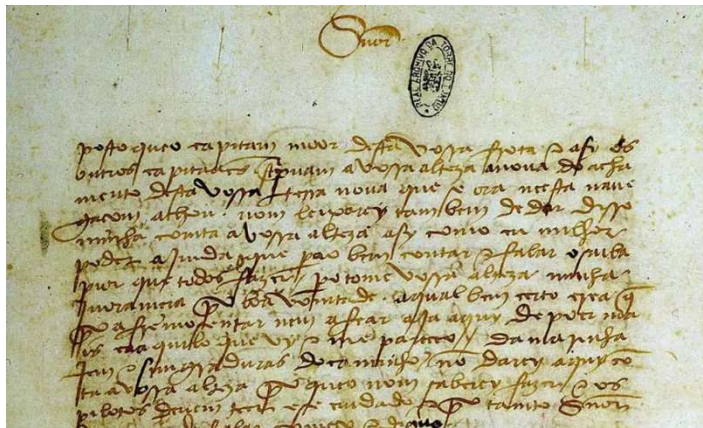 Snõr
REAL ARCHIVO DA TORRE DO TOMBO
posto queo capitam moor desta vossa frota e asy os
outros capitaães screpuam a vossa alteza anoua do acha
mento desta vossa terra noua que se ora nesta naue
gaçom achou. nom leixarey tambem de dar disso
minha comta avossa alteza asy como eu milhor
poder aimda que pera o bem contar e falar o saiba
pior que todos fazer. pero tome vossa alteza minha
jnoramçia por boa vomtade. aqual bem çerto crea q̃
por afremosentar nem afear aja aquy de poer ma
is ca aquilo que vy e me pareçeo. damarinha
jem e simgraduras docaminho nõ darey aquy cõ
ta a vossa alteza por queo nom saberey fazer e os
pilotos deuem teer ese cuidado e por tamto Snõr